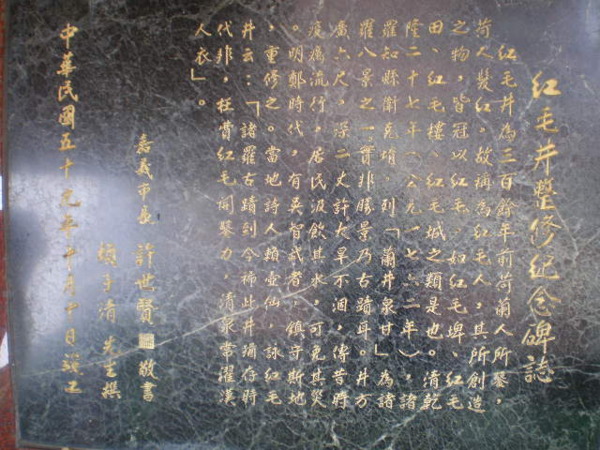 紅毛井整修紀念碑誌
紅毛井為三百餘年前荷蘭人所鑿，
荷人髮紅，故稱為紅毛人，其所創造
之物，皆冠以紅毛，如紅毛埤、紅毛
田、紅毛樓、紅毛城之類是也。清乾
隆二十七年（公元一七六二年），諸
羅知縣衛克堉，列「蘭井泉甘」為諸
羅八景之一，實非勝景乃古蹟耳。井方
廣六尺，深二丈許大旱不涸，傳昔時
疫癘流行，居民汲飲其水，可免其災
。明鄭時代，有吳智武者，鎮守斯地
，重修之。當地詩人賴壺仙，詠紅毛
井云：「諸羅古蹟到今稀此井猶存時
代非，枉費紅毛開鑿力，清泉常濯漢
人衣」。
嘉義市長 許世賢 敬書
賴子清 先生撰
中華民國五十九年十月十日竣工